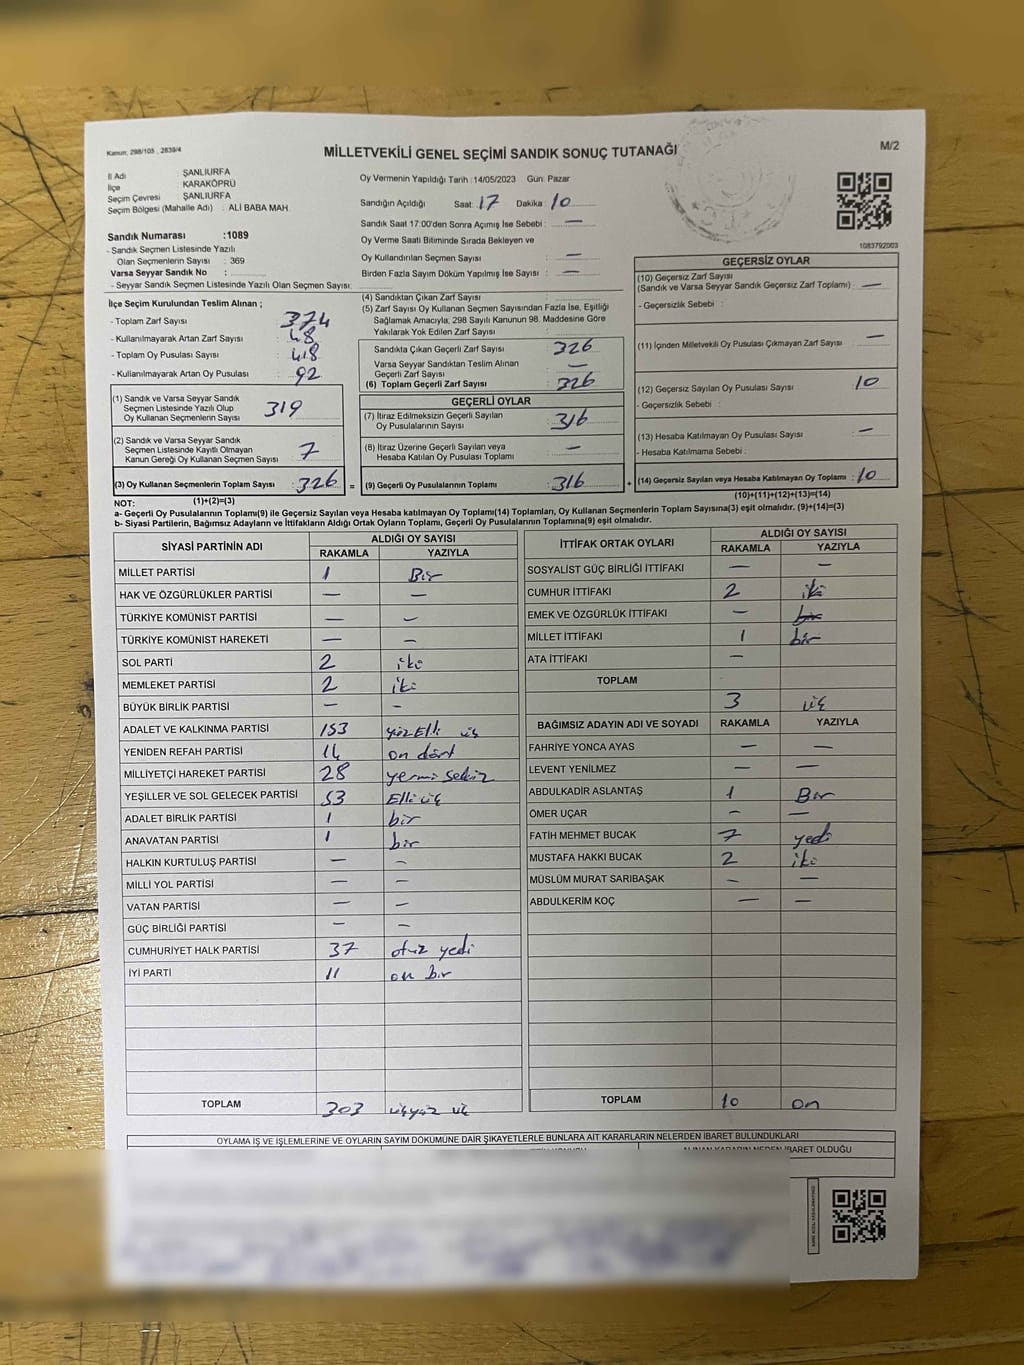 Kanun: 298/105 , 2839/4
MİLLETVEKİLİ GENEL SEÇİMİ SANDIK SONUÇ TUTANAĞI
M/2
İl Adı : ŞANLIURFA
İlçe : KARAKÖPRÜ
Seçim Çevresi : ŞANLIURFA
Seçim Bölgesi (Mahalle Adı) : ALİ BABA MAH.
Sandık Numarası :1089
- Sandık Seçmen Listesinde Yazılı
Olan Seçmenlerin Sayısı : 369
Varsa Seyyar Sandık No :
- Seyyar Sandık Seçmen Listesinde Yazılı Olan Seçmen Sayısı:
Oy Vermenin Yapıldığı Tarih :14/05/2023 Gün: Pazar
Sandığın Açıldığı Saat: 17 Dakika: 10
Sandık Saat 17:00'den Sonra Açılmış İse Sebebi : —
Oy Verme Saati Bitiminde Sırada Bekleyen ve
Oy Kullandırılan Seçmen Sayısı : —
Birden Fazla Sayım Döküm Yapılmış İse Sayısı : —
1083792003
İlçe Seçim Kurulundan Teslim Alınan ;
- Toplam Zarf Sayısı : 374
- Kullanılmayarak Artan Zarf Sayısı : 48
- Toplam Oy Pusulası Sayısı : 418
- Kullanılmayarak Artan Oy Pusulası : 92
(1) Sandık ve Varsa Seyyar Sandık
Seçmen Listesinde Yazılı Olup
Oy Kullanan Seçmenlerin Sayısı : 319
(2) Sandık ve Varsa Seyyar Sandık
Seçmen Listesinde Kayıtlı Olmayan
Kanun Gereği Oy Kullanan Seçmen Sayısı : 7
(3) Oy Kullanan Seçmenlerin Toplam Sayısı : 326
(1)+(2)=(3)
(4) Sandıktan Çıkan Zarf Sayısı :
(5) Zarf Sayısı Oy Kullanan Seçmen Sayısından Fazla İse, Eşitliği
Sağlamak Amacıyla, 298 Sayılı Kanunun 98. Maddesine Göre
Yakılarak Yok Edilen Zarf Sayısı :
Sandıkta Çıkan Geçerli Zarf Sayısı : 326
Varsa Seyyar Sandıktan Teslim Alınan
Geçerli Zarf Sayısı : —
(6) Toplam Geçerli Zarf Sayısı : 326
GEÇERLİ OYLAR
(7) İtiraz Edilmeksizin Geçerli Sayılan
Oy Pusulalarının Sayısı : 316
(8) İtiraz Üzerine Geçerli Sayılan veya
Hesaba Katılan Oy Pusulası Toplamı : —
= (9) Geçerli Oy Pusulalarının Toplamı : 316
GEÇERSİZ OYLAR
(10) Geçersiz Zarf Sayısı
(Sandık ve Varsa Seyyar Sandık Geçersiz Zarf Toplamı) : —
- Geçersizlik Sebebi :
(11) İçinden Milletvekili Oy Pusulası Çıkmayan Zarf Sayısı : —
(12) Geçersiz Sayılan Oy Pusulası Sayısı : 10
- Geçersizlik Sebebi :
(13) Hesaba Katılmayan Oy Pusulası Sayısı : —
- Hesaba Katılmama Sebebi :
+ (14) Geçersiz Sayılan veya Hesaba Katılmayan Oy Toplamı : 10
(10)+(11)+(12)+(13)=(14)
NOT:
a- Geçerli Oy Pusulalarının Toplamı(9) ile Geçersiz Sayılan veya Hesaba katılmayan Oy Toplamı(14) Toplamları, Oy Kullanan Seçmenlerin Toplam Sayısına(3) eşit olmalıdır. (9)+(14)=(3)
b- Siyasi Partilerin, Bağımsız Adayların ve İttifakların Aldığı Ortak Oyların Toplamı, Geçerli Oy Pusulalarının Toplamına(9) eşit olmalıdır.
SİYASİ PARTİNİN ADI ALDIĞI OY SAYISI
RAKAMLA YAZIYLA
MİLLET PARTİSİ 1 Bir
HAK VE ÖZGÜRLÜKLER PARTİSİ — —
TÜRKİYE KOMÜNİST PARTİSİ — —
TÜRKİYE KOMÜNİST HAREKETİ — —
SOL PARTİ 2 iki
MEMLEKET PARTİSİ 2 iki
BÜYÜK BİRLİK PARTİSİ — —
ADALET VE KALKINMA PARTİSİ 153 yüzElli üç
YENİDEN REFAH PARTİSİ 14 on dört
MİLLİYETÇİ HAREKET PARTİSİ 28 yermi sekiz
YEŞİLLER VE SOL GELECEK PARTİSİ 53 Elli üç
ADALET BİRLİK PARTİSİ 1 bir
ANAVATAN PARTİSİ 1 bir
HALKIN KURTULUŞ PARTİSİ — —
MİLLİ YOL PARTİSİ — —
VATAN PARTİSİ — —
GÜÇ BİRLİĞİ PARTİSİ — —
CUMHURİYET HALK PARTİSİ 37 otuz yedi
İYİ PARTİ 11 on bir
TOPLAM 303 üçyüz üç
İTTİFAK ORTAK OYLARI ALDIĞI OY SAYISI
RAKAMLA YAZIYLA
SOSYALİST GÜÇ BİRLİĞİ İTTİFAKI — —
CUMHUR İTTİFAKI 2 iki
EMEK VE ÖZGÜRLÜK İTTİFAKI — bir
MİLLET İTTİFAKI 1 bir
ATA İTTİFAKI —
TOPLAM
3 üç
BAĞIMSIZ ADAYIN ADI VE SOYADI RAKAMLA YAZIYLA
FAHRİYE YONCA AYAS — —
LEVENT YENİLMEZ — —
ABDULKADİR ASLANTAŞ 1 Bir
ÖMER UÇAR — —
FATİH MEHMET BUCAK 7 yedi
MUSTAFA HAKKI BUCAK 2 iki
MÜSLÜM MURAT SARIBAŞAK — —
ABDULKERİM KOÇ — —
TOPLAM 10 on
OYLAMA İŞ VE İŞLEMLERİNE VE OYLARIN SAYIM DÖKÜMÜNE DAİR ŞİKAYETLERLE BUNLARA AİT KARARLARIN NELERDEN İBARET BULUNDUKLARI
ALINAN KARARIN NEDEN İBARET OLDUĞU